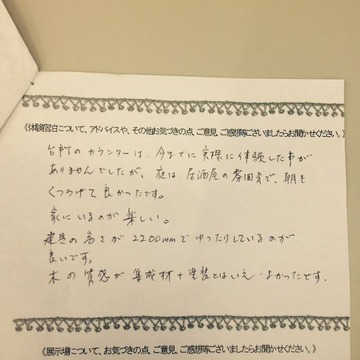 《体験宿泊について、アドバイスや、その他お気づきの点、ご意見、ご感想等ございましたらお聞かせください。》
台形のカウンターは、今までに実際に体験した事が
ありませんでしたが、夜は、居酒屋の雰囲気で、朝も
くつろげて良かったです。
家にいるのが楽しい。
建具の高さが2200mmでゆったりしているのが
良いです。
木の質感が集成材+塗装とはいえ、よかったです。
《展示場について、お気づきの点、ご意見、ご感想等ございましたらお聞かせください。》